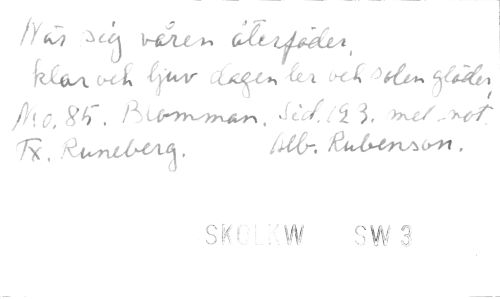 När sig våren återföder,
klar och ljuv dagen ler och solen glöder,
No. 85. Blomman. Sid. 123. mel. not.
Tx. Runeberg. Alb. Rubenson.
SKOLKW SW 3